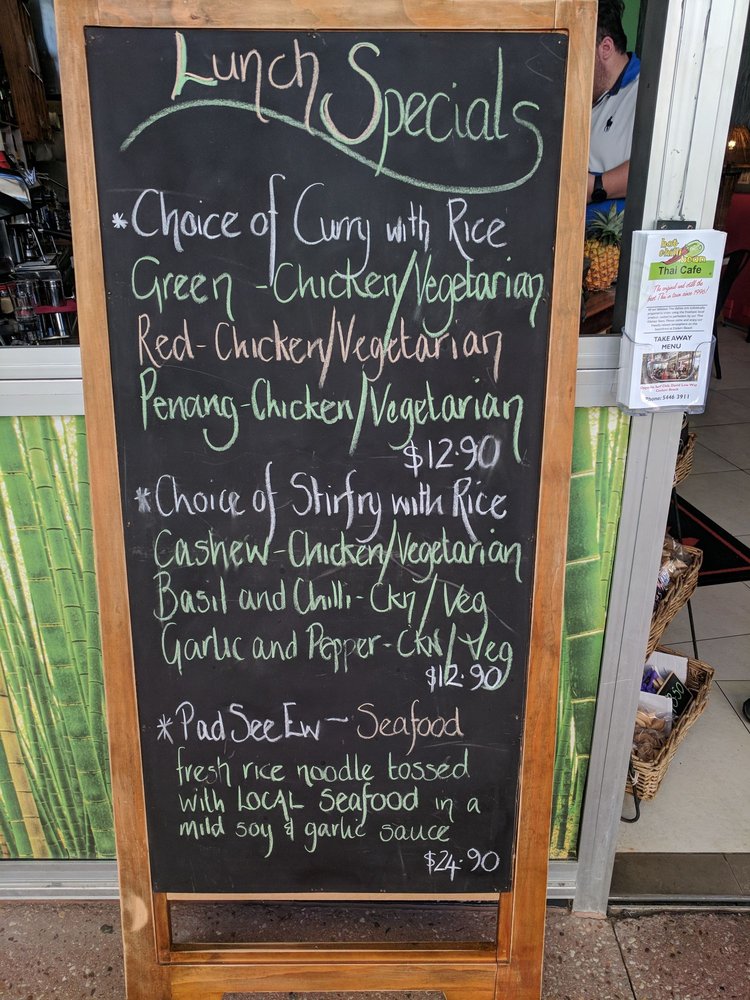 Lunch Specials
* Choice of Curry with Rice
Green - Chicken/Vegetarian
Red - Chicken/Vegetarian
Penang - Chicken/Vegetarian
$12.90
* Choice of Stirfry with Rice
Cashew - Chicken/Vegetarian
Basil and Chilli - Ckn/Veg
Garlic and Pepper - CKN/Veg
$12.90
* Pad See Ew ~ Seafood
fresh rice noodle tossed
with LOCAL Seafood in a
mild soy & garlic sauce
$24.90
Thai Cafe
The original and still the
best Thai in town since 1996!
TAKE AWAY
MENU
Phone: 5446 3911